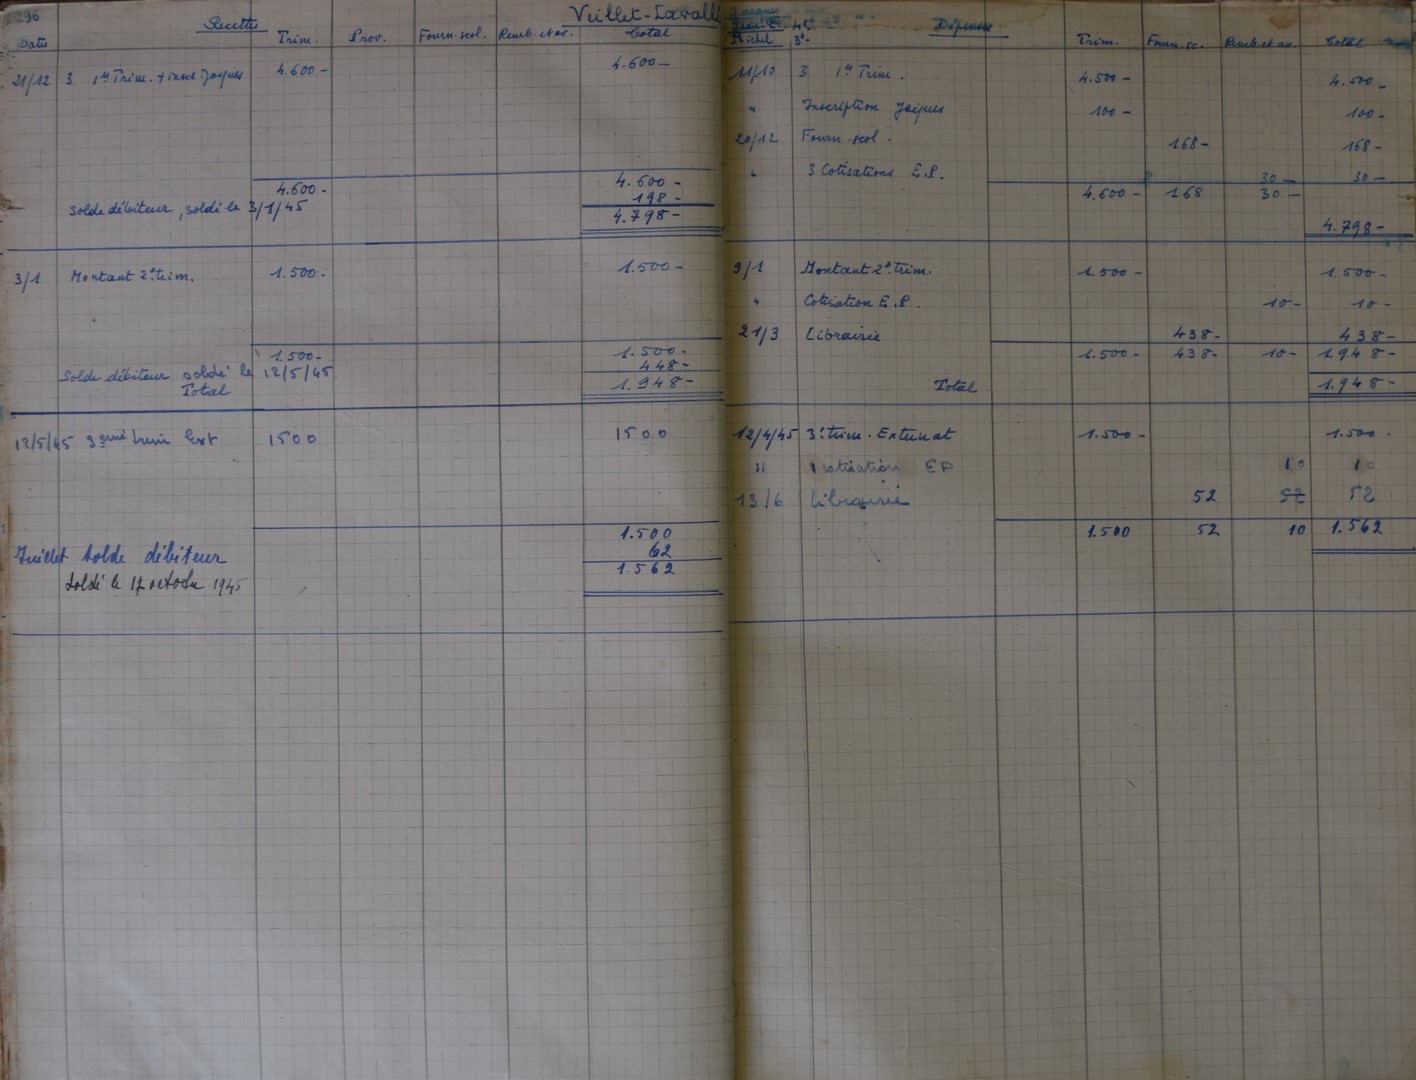 296
Veillet-Lavallée
Recettes
Dates Trim. Prov. Fourn. scol. Remb. et av. Total
21/12 3 1er Trim. + inscr Jacques 4.600- 4.600-
4.600- 4.600-
198-
Solde débiteur, soldé le 3/1/45 4.798-
3/1 Montant 2e trim. 1.500- 1.500-
1.500- 1.500-
Solde débiteur soldé le 12/5/45 448-
Total 1.948-
12/5/45 3eme trim Ext 1500 1500
1.500
Juillet Solde débiteur 62
1.562
soldé le 17 octobre 1945
Jacques
4e
Michel 3e
Dépenses
Trim. Fourn. sc. Remb. et av. Total
11/10 3 1er Trim. 4.500- 4.500-
" Inscription Jacques 100- 100-
20/12 Fourn. scol. 168- 168-
" 3 Cotisations E.P. 30- 30-
4.600- 168 30-
4.798-
9/1 Montant 2e trim. 1.500- 1.500-
" Cotisation E.P. 10- 10-
21/3 Librairie 438- 438-
1.500- 438- 10- 1.948-
Total 1.948-
12/4/45 3e trim. Externat 1.500- 1.500.
" Cotisation EP 10 10
13/6 Librairie 52 52 52
1.500 52 10 1.562